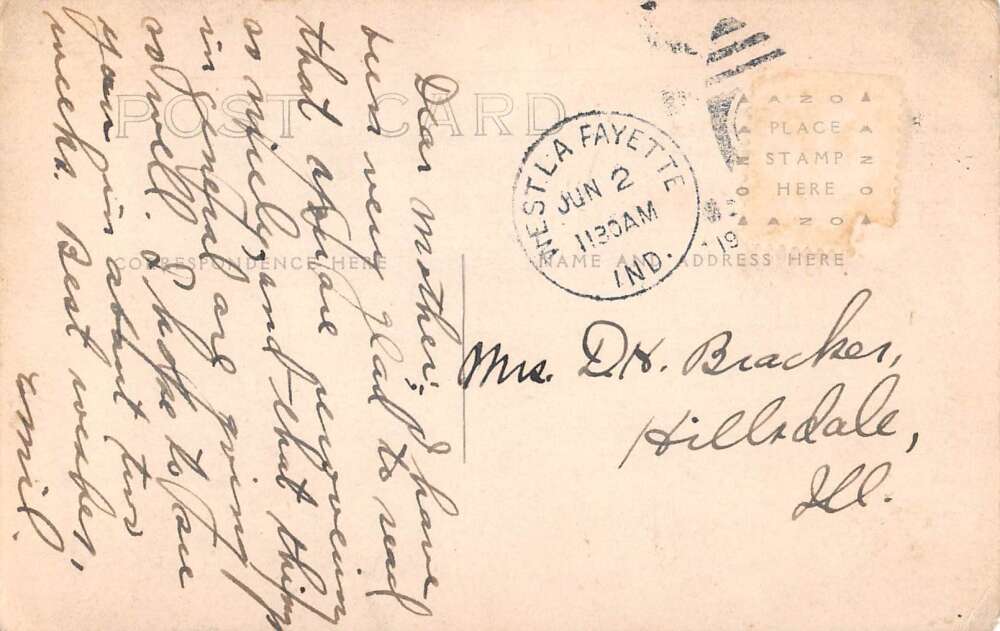 POST CARD
CORRESPONDENCE HERE
NAME AND ADDRESS HERE
AZO
PLACE
STAMP
HERE
AZO
AZO
AZO
WEST LA FAYETTE
JUN 2
1130AM
IND.
19
Mrs. D.H. Bracker,
Hillsdale,
Ill.
Dear Mother: I have
been very glad to read
that you are
so nicely and that things
in general are going
so well. I hope to see
you in about two
weeks. Best wishes,
Emil